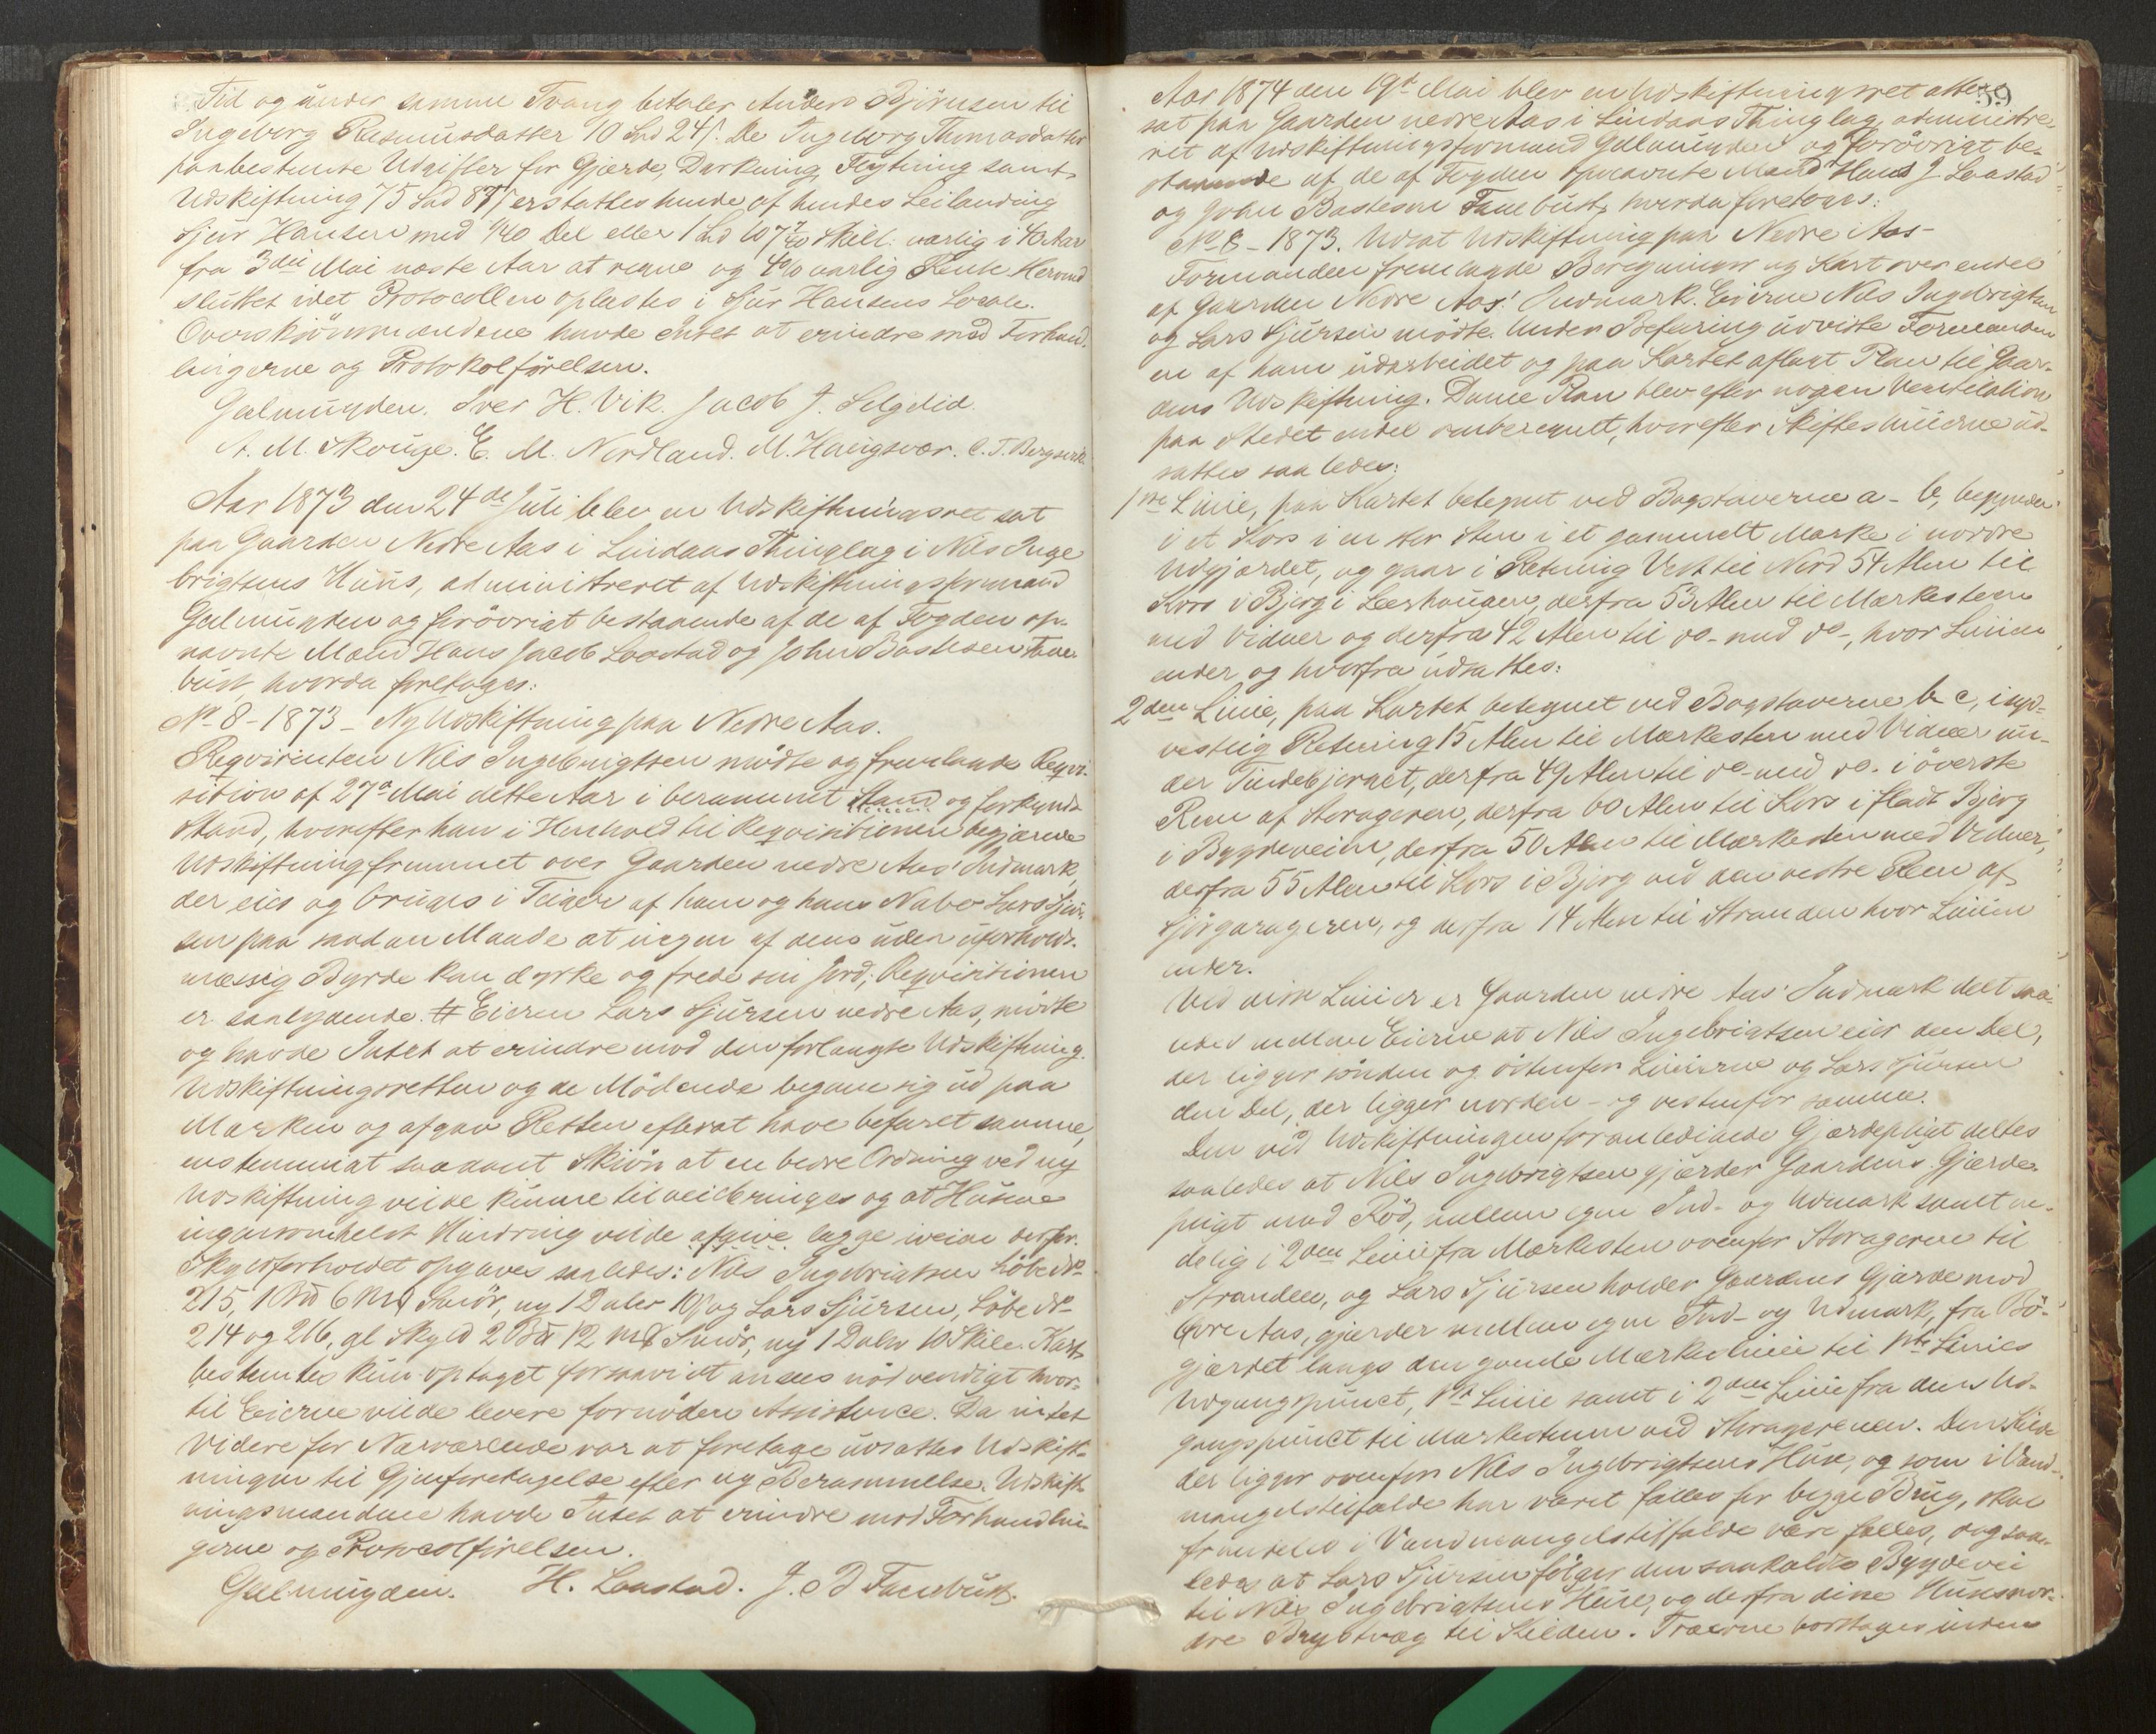 Tid og under samme Tvang betaler Anders Björnsen til
Ingeborg Rasmusdatter 10 Spd 24 s. De Ingeborg Thomasdatter
paabestemte Udgifter for Gjærde, Dyrkning, Flytning samt
Udskiftning 75 Spd 87 s erstattes hende af hendes Leilænding
Sjur Hansen med 1/40 Del eller 1 Spd 107 7/40 Skill. aarlig i 40 Aar
fra 3die Mai næste Aar at regne og 4% aarlig Rente. Hermed
sluttet idet Protocollen oplæstes i Sjur Hansens Locale.
Overskjönsmændene havde Intet at erindre mod Forhand-
lingerne og Protokolförelsen.
Gulmugden. Iver H. Vik. Jacob J. Selgelid.
A. M. Skouge. E. M. Nordland. M. Haugsvær. C. T. Bergsvik
Aar 1873 den 24de Juli blev en Udskiftningsret sat
paa Gaarden Nedre Aas i Lindaas Thinglag i Nils Inge
brigtsens Huus, administreret af Udskiftningsformand
Gulmugden og forövrigt bestaaende af de af Fogden op-
nævnte Mænd Hans Jacob Loostad og John Bastesen Fane-
bust, hvorda foretoges:
No 8 - 1873 - Ny Udskiftning paa Nedre Aas.
Reqvirenten Nils Ingebrigtsen mödte og fremlagde Reqvi-
sition af 27de Mai dette Aar i berammet Stand og forkyndt
Stand, hvorefter han i Henhold til Reqvisitionen begjærede
Udskiftning fremmet over Gaarden nedre Aas' Indmark,
der eies og bruges i Teiger af ham og hans Nabo Lars Sjur-
sen paa saadan Maade at ingen af dem uden uforholds-
mæssig Byrde kan dyrke og frede sin Jord; Reqvisitionen
er saalydende # Eieren Lars Sjursen nedre Aas, mödte
og havde Intet at erindre mod den forlangte Udskiftning.
Udskiftningsretten og de Mödende begave sig ud paa
Marken og afgav Retten efterat have befaret samme,
enstemmigt saadant Skjön at en bedre Ordning ved ny
Udskiftning vilde kunne tilveiebringes og at Husene
ingensomhelst Hindring vilde afgive lægge iveien derfor.
Skyldforholdet opgaves saaledes: Nils Ingebrigtsen Löbe No
215, 1 Bd 6 Mrk Smör, ny 1 Daler 10 s og Lars Sjursen, Löbe No
214 og 216, gl Skyld 2 Bd 12 Mrk Smör, ny 1 Daler 10 Skill. Kart
bestemtes kun optaget forsaavidt ansees nödvendigt hvor-
til Eierne vilde levere fornöden Assistence. Da intet
Videre for Nærværende var at foretage udsattes Udskift-
ningen til Gjenforetagelse efter ny Berammelse. Udskift-
ningsmændene havde Intet at erindre mod Forhandlin-
gerne og Protocolförelsen.
Gulmugden. H. Loostad. J. B Fanebust.
59
Aar 1874 den 19de Mai blev en Udskiftningsret atter
sat paa Gaarden nedre Aas i Lindaas Thinglag, administre-
ret af Udskiftningsformand Gulmugden og forövrigt be-
staaende af de af Fogden opnævnte Mænd Hans J. Loostad
og John Bastesen Fanebust, hvorda foretoges:
No 8 - 1873. Udsat Udskiftning paa Nedre Aas -
Formanden fremlagde Beregninger og Kart over endel
af Gaarden Nedre Aas' Indmark. Eierne Nils Ingebrigtsen
og Lars Sjursen mödte. Under Befaring udviste Formanden
en af ham udarbeidet og paa Kartet aflagt Plan til Gaar-
dens Udskiftning. Denne Plan blev efter nogen Ventilation
paa Stedet endel omberegnet, hvorefter Skifteslinierne ud-
sattes saaledes:
1ste Linie, paa Kartet betegnet ved Bogstaverne a - b, begynder
i et Kors i en stor Sten i et gammelt Mærke i nordre
Udgjærdet, og gaar i Retning Vest til Nord 54 Alen til
Kors i Bjerg i Leerhaugen, derfra 53 Alen til Mærkesteen
med Vidner og derfra 42 Alen til do - med do -, hvor Linien
ender og hvorfra udsattes:
2den Linie, paa Kartet betegnet ved Bogstaverne b - c, i syd-
vestlig Retning 15 Alen til Mærkesten med Vidner un-
der Tindebjerget, derfra 49 Alen til do - med do. i överste
Reen af Storageren, derfra 60 Alen til Kors i fladt Bjerg
i Bygdeveien, derfra 50 Alen til Mærkesten med Vidner,
derfra 55 Alen til Kors i Bjerg ved den vestre Reen af
Sjögarageren, og derfra 14 Alen til Stranden hvor Linien
ender.
Ved disse Linier er Gaarden nedre Aas' Indmark delt saa-
ledes mellem Eierne at Nils Ingebrigtsen eier den Del,
der ligger sönden og östenfor Linierne og Lars Sjursen
den Del, der ligger norden - og vestenfor samme.
Den ved Udskiftningen foranledigede Gjærdepligt deltes
saaledes at Nils Ingebrigtsen gjærder Gaardens Gjærde-
pligt mod Röd, mellem egen Ind- og Udmark samt en-
delig i 2den Linie fra Mærkesten ovenfor Storageren til
Stranden, og Lars Sjursen holder Gaardens Gjærde mod
Övre Aas, gjærder mellem egen Ind- og Udmark, fra Bö-
gjærdet langs den gamle Mærkeslinie til 1ste Linies
Udgangspunct, 1ste Linie samt i 2den Linie fra dens Ud-
gangspunct til Mærkestenen ved Storagerenen. Den Kilde
der ligger ovenfor Nils Ingebrigtsens Huse, og som i Vand-
mangelstilfælde har været fælles for begge Brug, skal
fremdeles i Vandmangelstilfælde være fælles, dog saa-
ledes at Lars Sjursen fölger den saakaldte Bygdevei
til Nils Ingebrigtsens Huse, og derfra disse Huses nor-
dre Brystvæg til Kilden. Træerne borttages inden